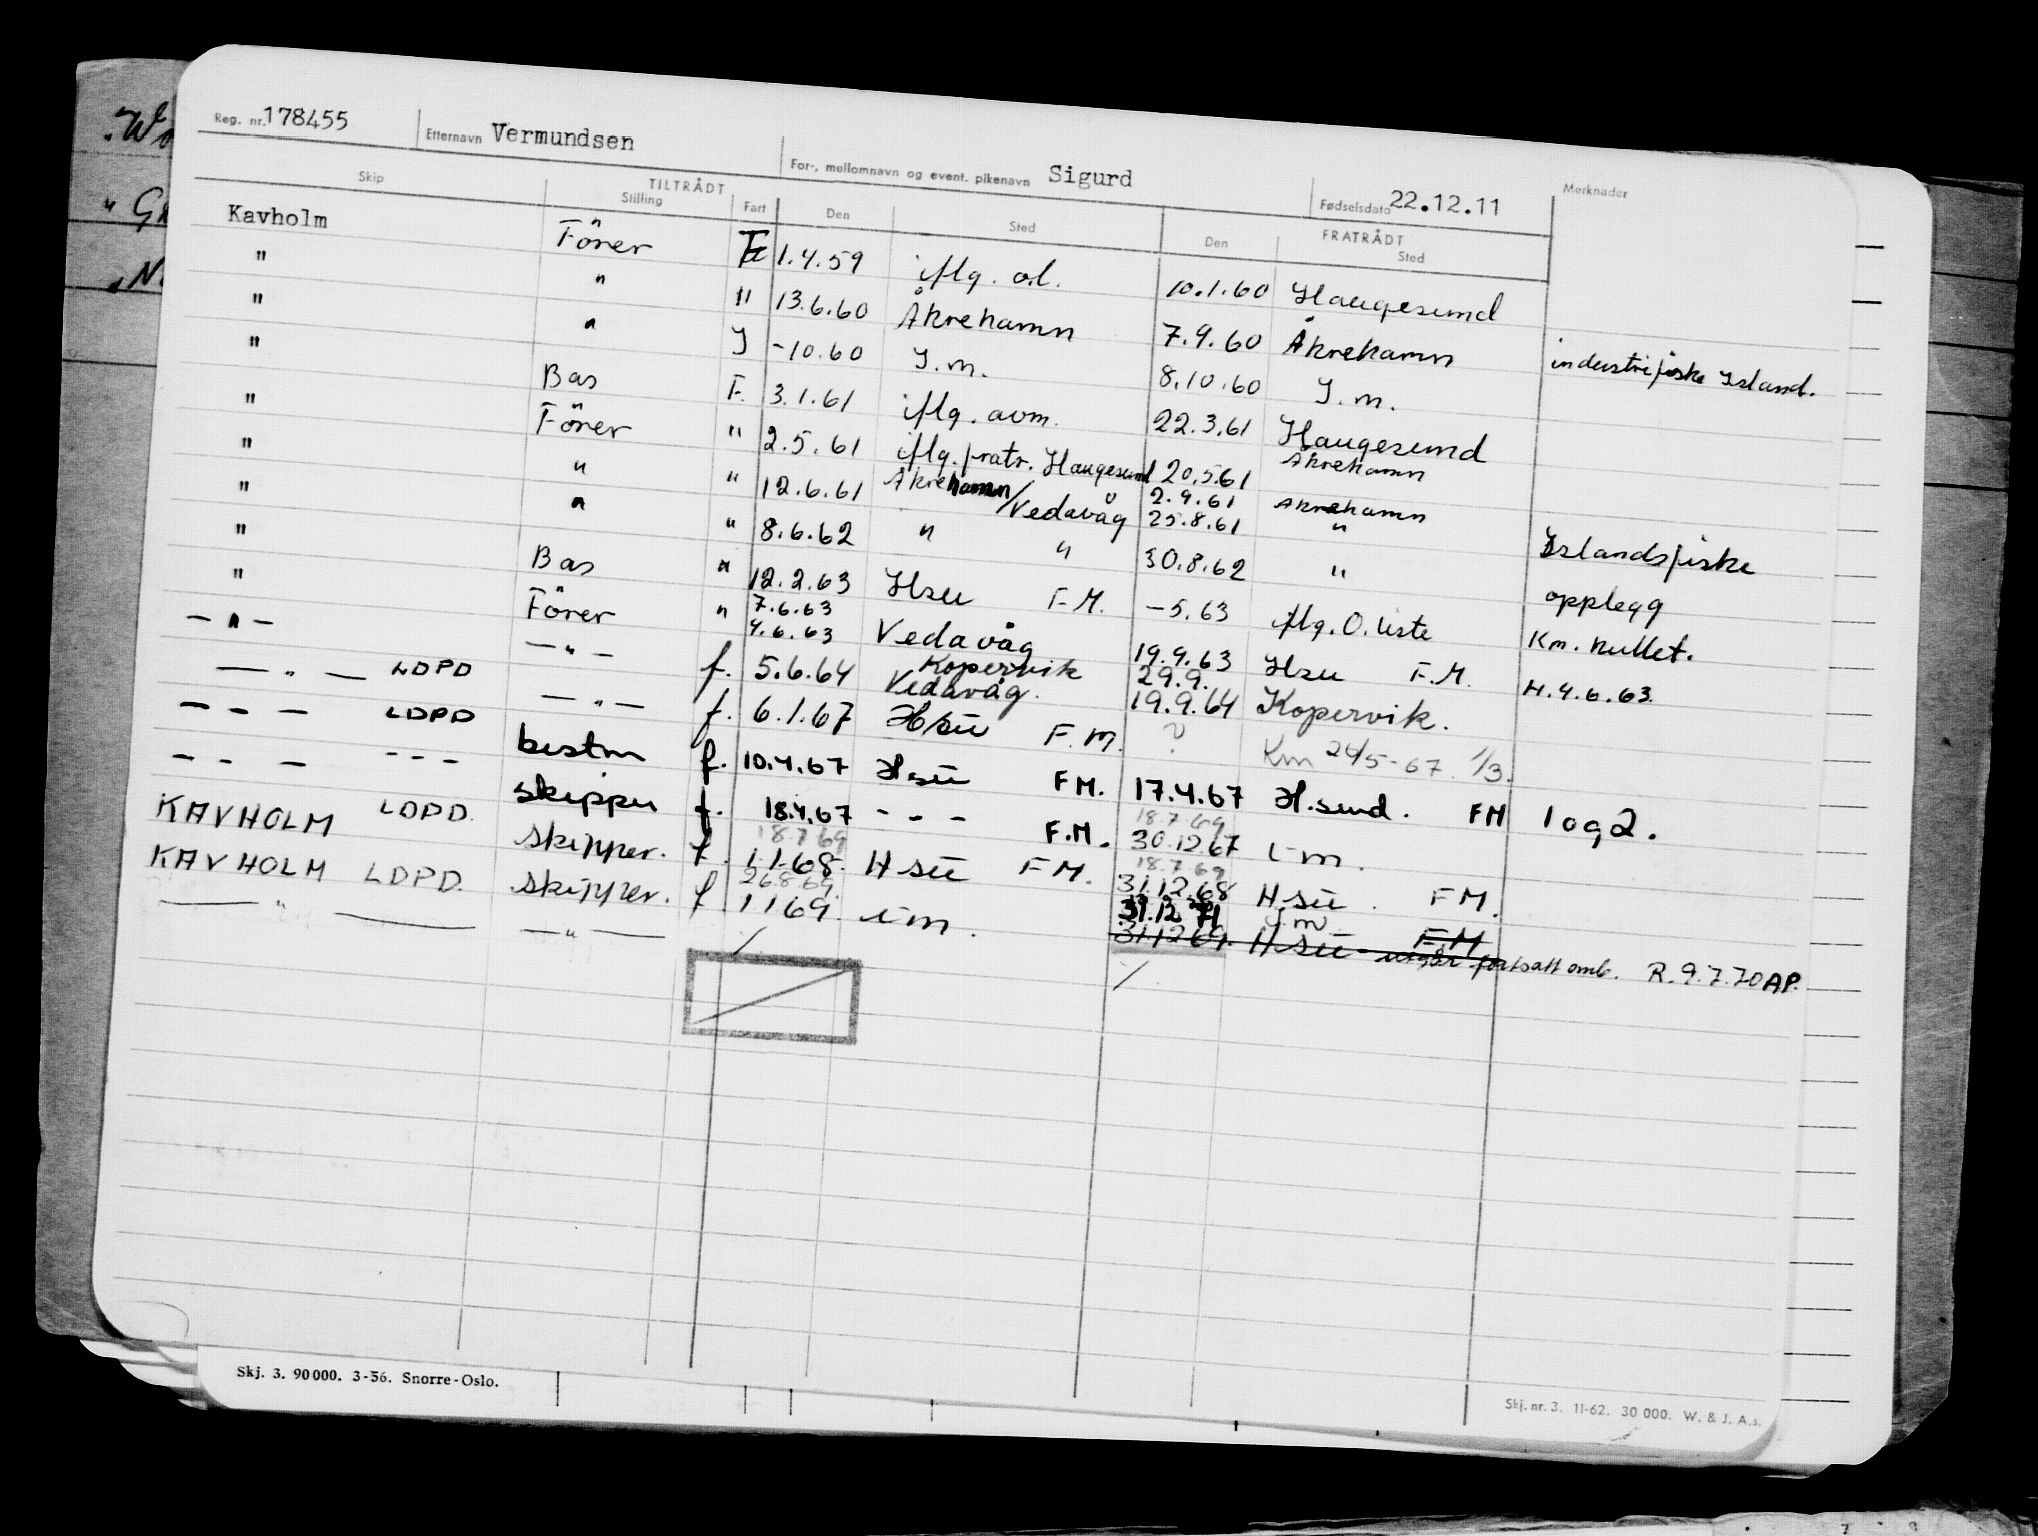 Reg. nr. 178455 Etternavn Vermundsen For-, mellomnavn og event. pikenavn Sigurd Fødselsdato 22.12.11 Merknader
TILTRÅDT FRATRÅDT
Skip Stilling Fart Den Sted Den Sted
Kavholm Förer F 1.4.59 iflg. o.l. 10.1.60 Haugesund
" " " 13.6.60 Åkrehamn 7.9.60 Åkrehamn industrifiske Island.
" " I -10.60 I.m. 8.10.60 I.m.
" Bas F. 3.1.61 iflg. avm. 22.3.61 Haugesund
" Förer " 2.5.61 iflg. fratr. Haugesund 20.5.61 Åkrehamn
" " " 12.6.61 Åkrehamn/Vedavåg 2.9.61 Åkrehamn
25.8.61 "
" " " 8.6.62 " " 30.8.62 " Islandsfiske
" Bas " 12.2.63 Hsu F.M. -5.63 iflg. O.liste opplegg
" Förer " 7.6.63 Vedavåg 19.9.63 Hsu F.M. Km. kullet.
4.6.63
- " - - " - f. 5.6.64 Kopervik 29.9. Kopervik. H.4.6.63
Vedavåg. 19.9.64
- " - LDPD - " - f. 6.1.67 H/su F.M. ? Km 24/5-67. 1/3.
- - - LDPD bestm f. 10.4.67 Hsu FM. 17.4.67 H.sund. FM 1 og 2.
- - - - - - skipper f. 18.4.67 - - - F.M. 18.7.69
30.12.67 i m.
KAVHOLM LDPD. skipper. f. 18.7.69
1.1.68. H su FM. 18.7.69
31.12.68 H.su. FM.
KAVHOLM LDPD. skipper. f. 26.8.69
1 1 69. i m. 31.12 71 I.m
— " — — " — 31.12 69. H su F.M utgår fortsatt omb. R. 9.7.70 AP.
Skj. 3. 90000. 3-56. Snorre-Oslo.
Skj. nr. 3. 11-62. 30 000. W. & J. A.s.